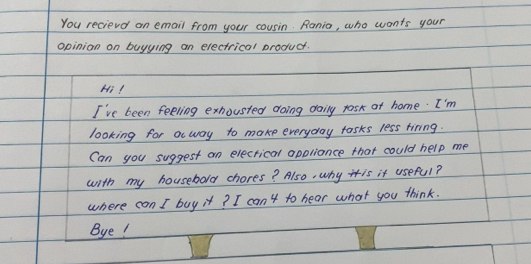 You recievd an email from your cousin Rania, who wants your
opinion on buyying an electrical product.
Hi !
I've been feeling exhousted doing daily task at home. I'm
looking for a way to make everyday tasks less tiring.
Can you suggest an electical appliance that could help me
with my household chores ? Also, why is it useful?
where can I buy it ? I can't to hear what you think.
Bye !